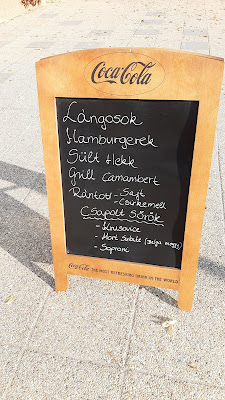 Coca-Cola
Lángosok
Hamburgerek
Sült Hekk
Grill Camambert
Rántott - Sajt
- Csirkemell
Csapolt Sörök
- Krusovice
- Hort Sebals (meggy)
- Soproni
Coca-Cola THE MOST REFRESHING DRINK IN THE WORLD